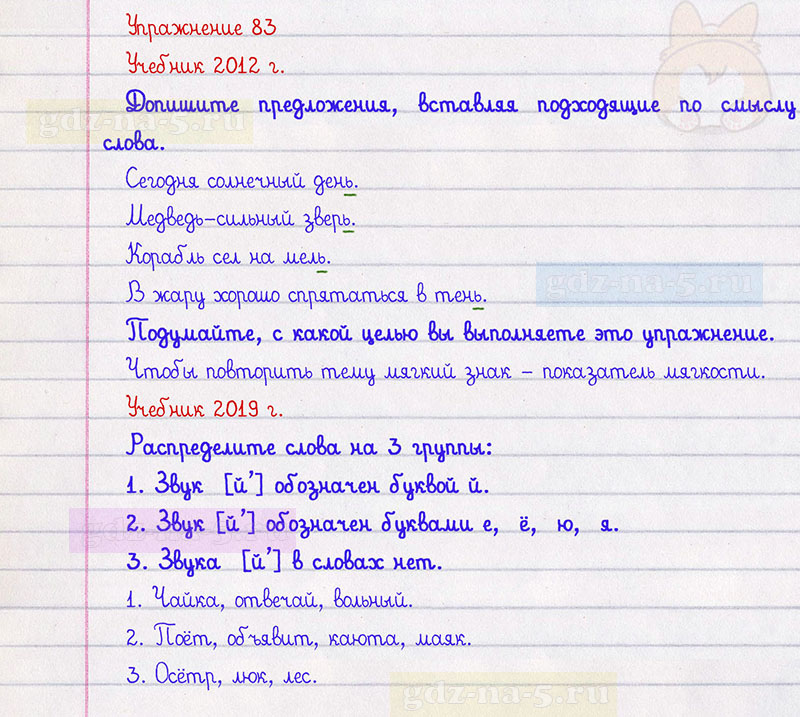 Упражнение 83
Учебник 2012 г.
Допишите предложения, вставляя подходящие по смыслу
слова.
gdz-na-5.ru
Сегодня солнечный день.
Медведь-сильный зверь.
Корабль сел на мель.
gdz-na-5.ru
В жару хорошо спрятаться в тень.
Подумайте, с какой целью вы выполняете это упражнение.
Чтобы повторить тему мягкий знак - показатель мягкости.
Учебник 2019 г.
Распределите слова на 3 группы:
1. Звук [й'] обозначен буквой й.
2. Звук [й'] обозначен буквами е, ё, ю, я.
gdz-na-5.ru
3. Звука [й'] в словах нет.
1. Чайка, отвечай, вольный.
2. Поёт, объявит, каюта, маяк.
3. Осётр, люк, лес.
gdz-na-5.ru